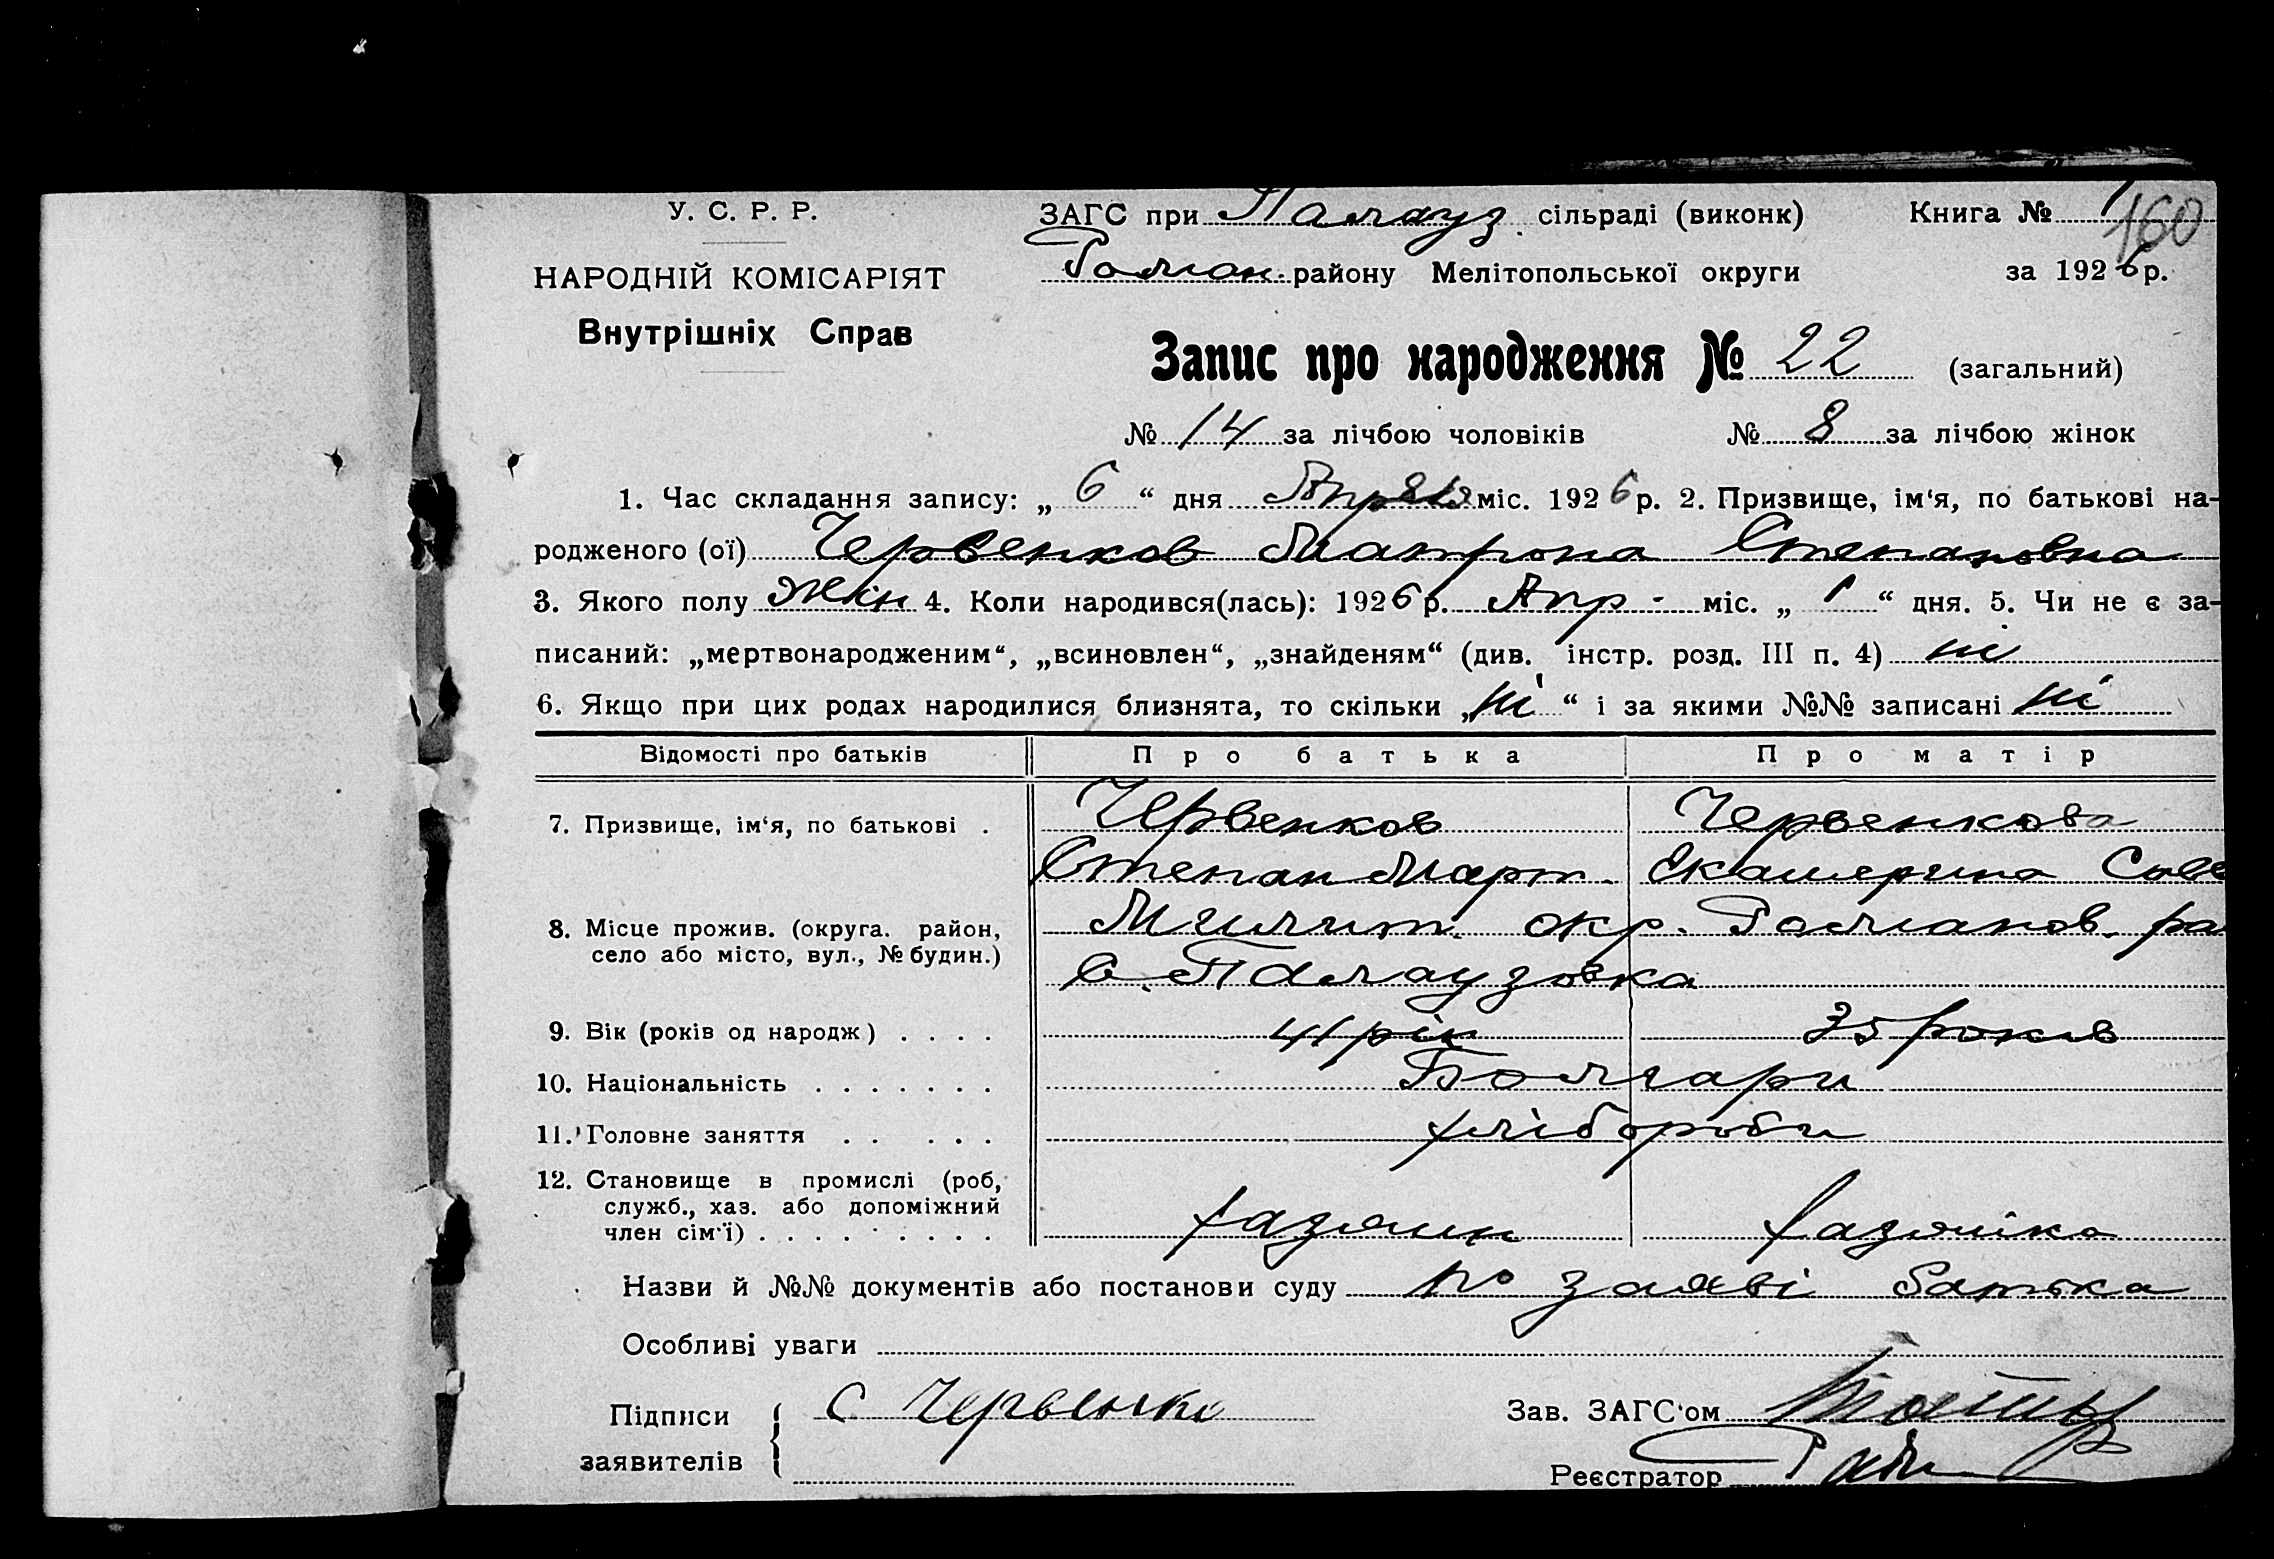 У. С. Р. Р.
НАРОДНІЙ КОМІСАРІЯТ
Внутрішніх Справ
ЗАГС при Палауз. сільраді (виконк) Книга № 1
160
Роман. району Мелітопольської округи за 1926 р.
Запис про народження № 22 (загальний)
№ 14 за лічбою чоловіків № 8 за лічбою жінок
1. Час складання запису: „ 6 “ дня Апреля міс. 1926 р. 2. Призвище, ім‘я, по батькові на-
родженого (ої) Червенков Матрона Степановна
3. Якого полу Жін 4. Коли народився(лась): 1926 р. Апр - міс. „ 1 “ дня. 5. Чи не є за-
писаний: „мертвонародженим“, „всиновлен“, „знайденям“ (див. інстр. розд. III п. 4) ні
6. Якщо при цих родах народилися близнята, то скільки „ ні “ і за якими №№ записані ні
Відомості про батьків Про батька Про матір
7. Призвище, ім‘я, по батькові . Червенков Червенкова
Степан Март. Екатерина Савв
8. Місце прожив. (округа. район, село або місто, вул., № будин.) Милит. окр. Романов. ра
с. Палаузовка
9. Вік (років од народж) . . . . 41 рік 35 років
10. Національність . . . . . . . Болгари
11. Головне заняття . . . . . хлібороби
12. Становище в промислі (роб, служб., хаз. або допоміжний член сім‘ї) . . . . . . . . . хазяин хазяйка
Назви й №№ документів або постанови суду по заяві батька
Особливі уваги
Підписи заявителів { С Червенко
Зав. ЗАГС‘ом
Реєстратор